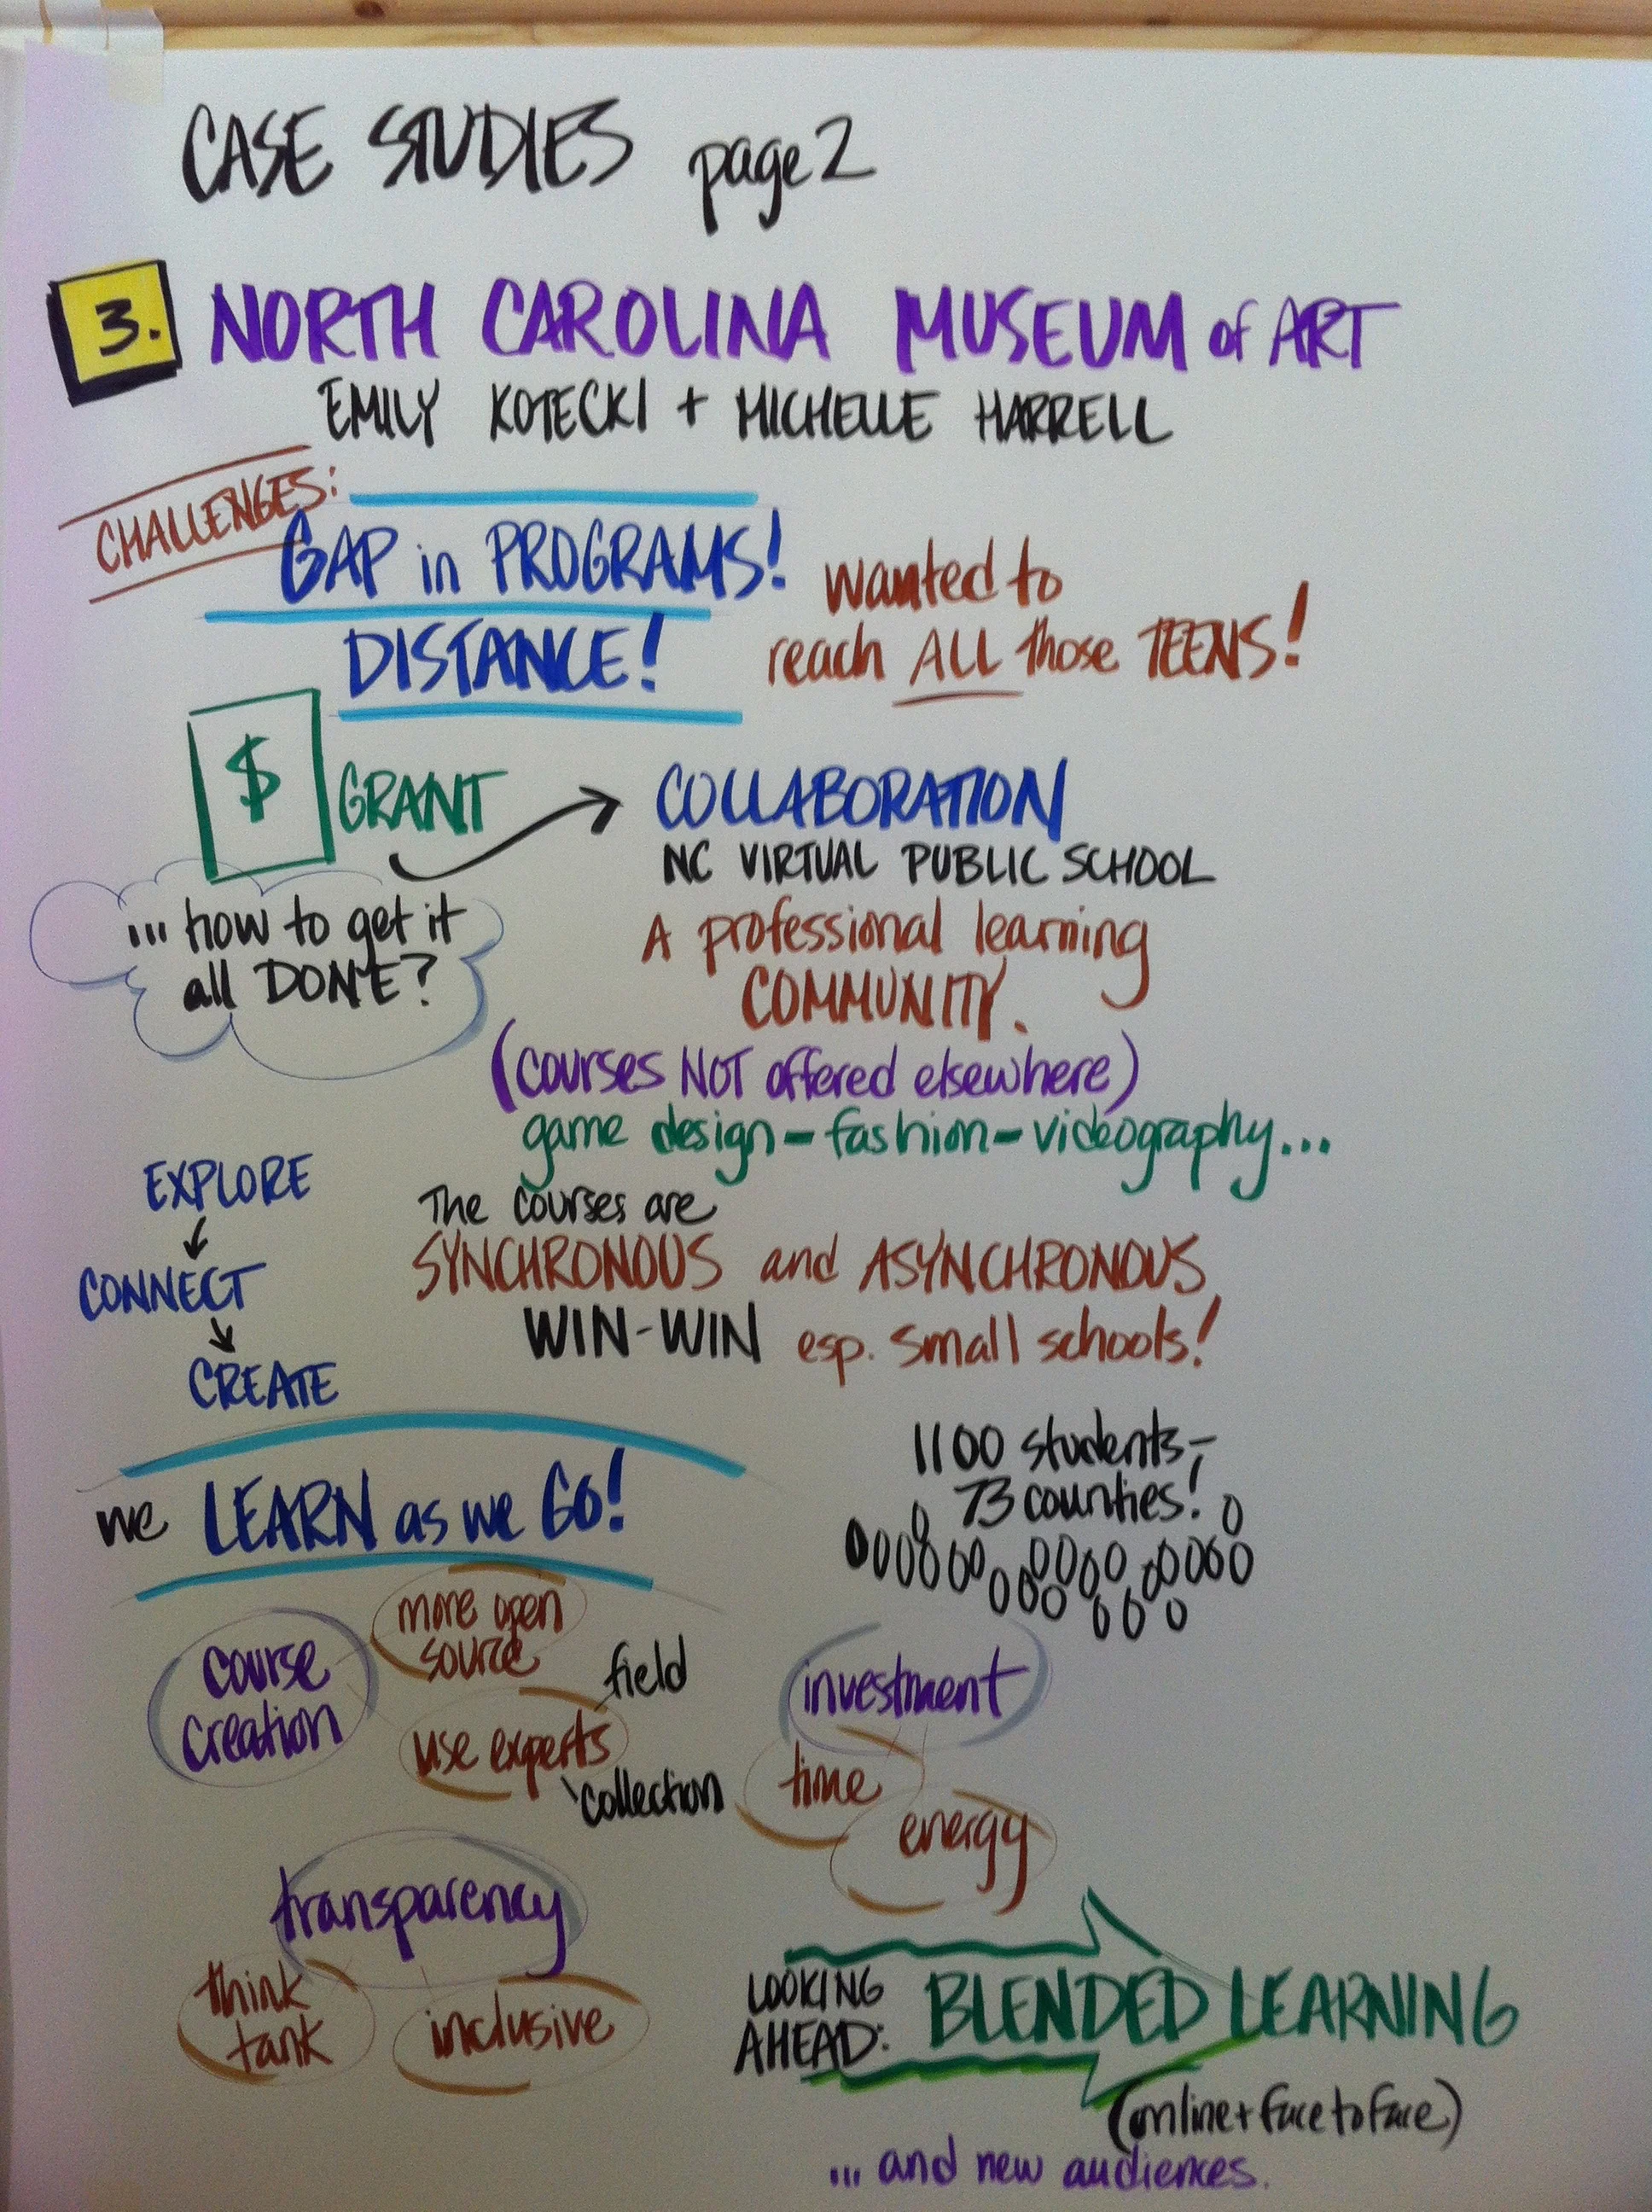 CASE STUDIES page 2
3. NORTH CAROLINA MUSEUM of ART
EMILY KOTECKI + MICHELLE HARRELL
CHALLENGES:
GAP in PROGRAMS!
DISTANCE!
wanted to
reach ALL those TEENS!
$ GRANT
... how to get it
all DONE?
COLLABORATION
NC VIRTUAL PUBLIC SCHOOL
A professional learning
COMMUNITY.
(courses NOT offered elsewhere)
game design - fashion - videography...
EXPLORE
CONNECT
CREATE
The courses are
SYNCHRONOUS and ASYNCHRONOUS
WIN-WIN esp. small schools!
we LEARN as we GO!
1100 students -
73 counties!
course
creation
more open
source
use experts
field
collection
investment
time
energy
transparency
think
tank
inclusive
LOOKING
AHEAD:
BLENDED LEARNING
(online + face to face)
... and new audiences.